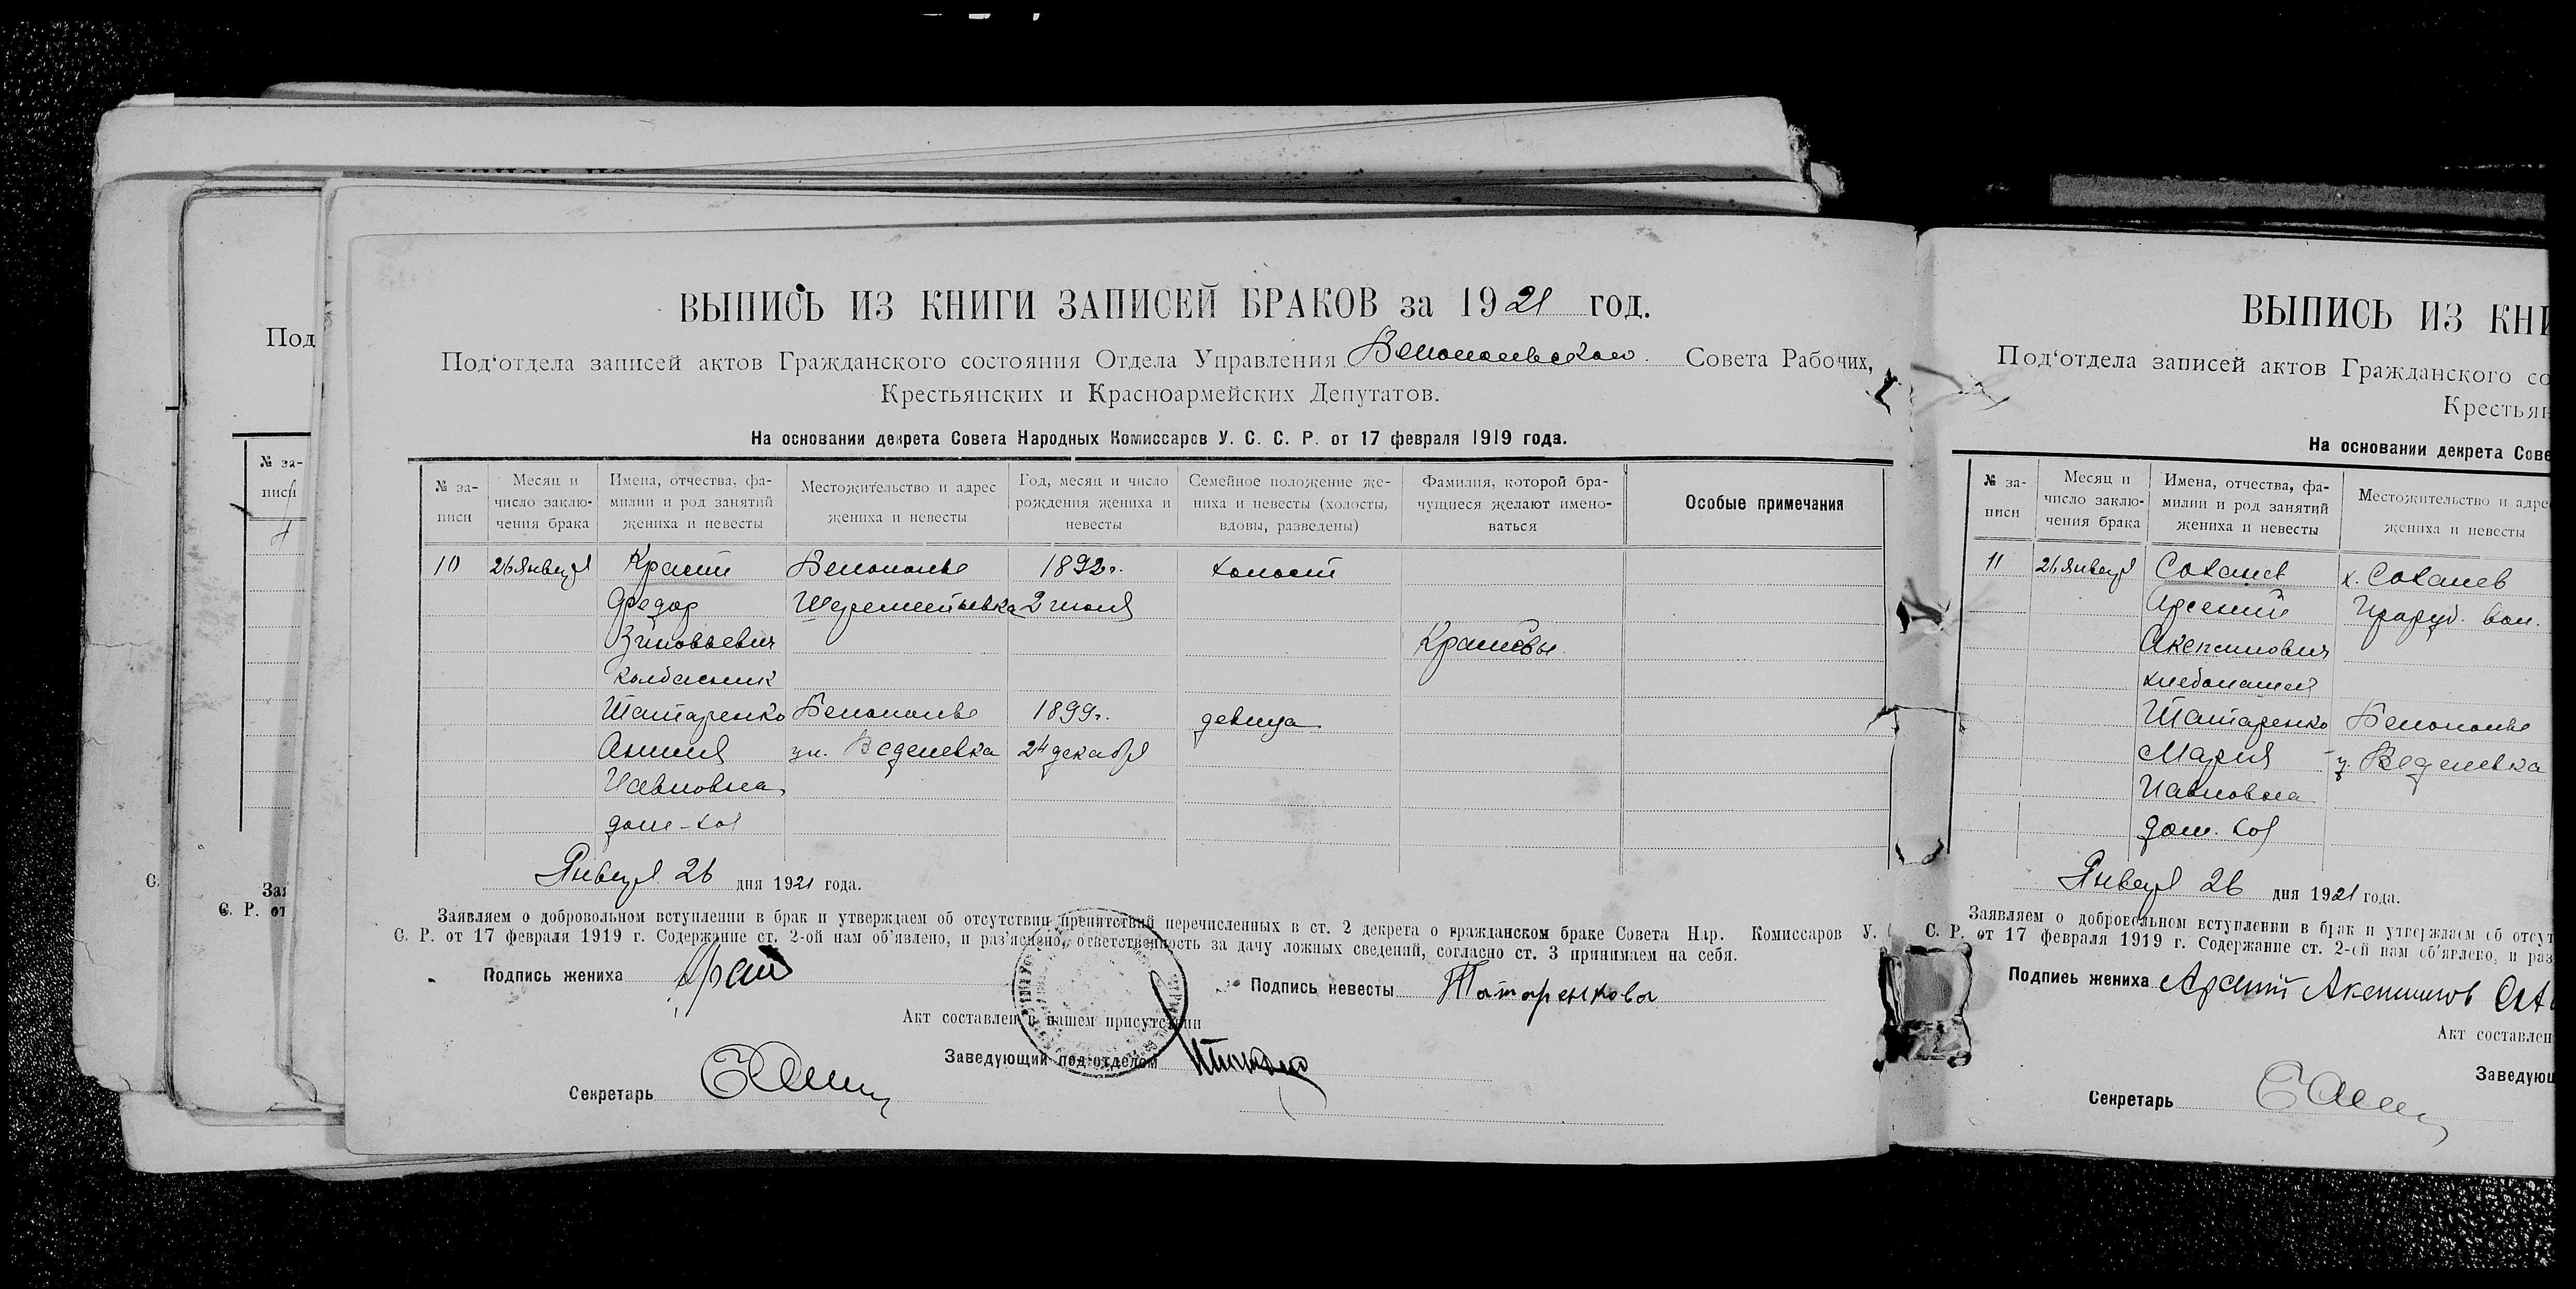 ВЫПИСЬ ИЗ КНИГИ ЗАПИСЕЙ БРАКОВ за 1921 год.
Под‘отдела записей актов Гражданского состояния Отдела Управления Белопольского Совета Рабочих,
Крестьянских и Красноармейских Депутатов.
На основании декрета Совета Народных Комиссаров У. С. С. Р. от 17 февраля 1919 года.
№ за-
писи
Месяц и
число заклю-
чения брака
Имена, отчества, фа-
милии и род занятий
жениха и невесты
Местожительство и адрес
жениха и невесты
Год, месяц и число
рождения жениха и
невесты
Семейное положение же-
ниха и невесты (холосты,
вдовы, разведены)
Фамилия, которой бра-
чущиеся желают имено-
ваться
Особые примечания
10 26 Января Белополье 1892 г. холост
Федор 2 июля
Зиновьевич
колбасник
Татаренко Белополье 1899 г. девица
ул. Веденевка 24 декабря
Павловна
дом-хоз
Января 26 дня 1921 года.
Заявляем о добровольном вступлении в брак и утверждаем об отсутствии препятствий перечисленных в ст. 2 декрета о гражданском браке Совета Нар. Комиссаров У.
С. Р. от 17 февраля 1919 г. Содержание ст. 2-ой нам об‘явлено, и раз‘яснено, ответственность за дачу ложных сведений, согласно ст. 3 принимаем на себя.
Подпись жениха
Подпись невесты Татаренкова
Акт составлен в нашем присутствии
Заведующий под‘отделом
Секретарь
ВЫПИСЬ ИЗ КНИ
Под‘отдела записей актов Гражданского со
Крестьян
На основании декрета Сове
№ за-
писи
Месяц и
число заклю-
чения брака
Имена, отчества, фа-
милии и род занятий
жениха и невесты
Местожительство и адре
жениха и невесты
11 26 Января Сохацев х. Сохацев
Арсений вол.
Акепсимович
хлебопашец
Татаренко Белополье
Мария у. Веденевка
Павловна
дом. хоз
Января 26 дня 1921 года.
Заявляем о добровольном вступлении в брак и утверждаем об отсут
С. Р. от 17 февраля 1919 г. Содержание ст. 2-ой нам об‘явлено, и раз
Подпись жениха
Акт составлен
Заведующ
Секретарь
Под
№ за-
писи
С.
Зая
С. Р. от